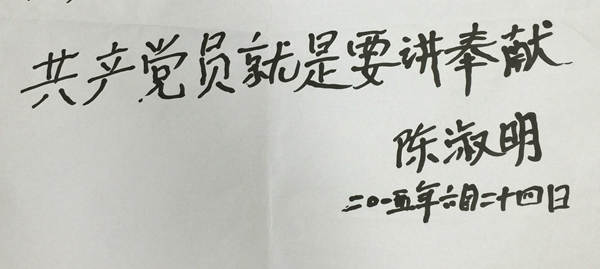 共产党员就是要讲奉献
陈淑明
二〇一五年六月二十四日